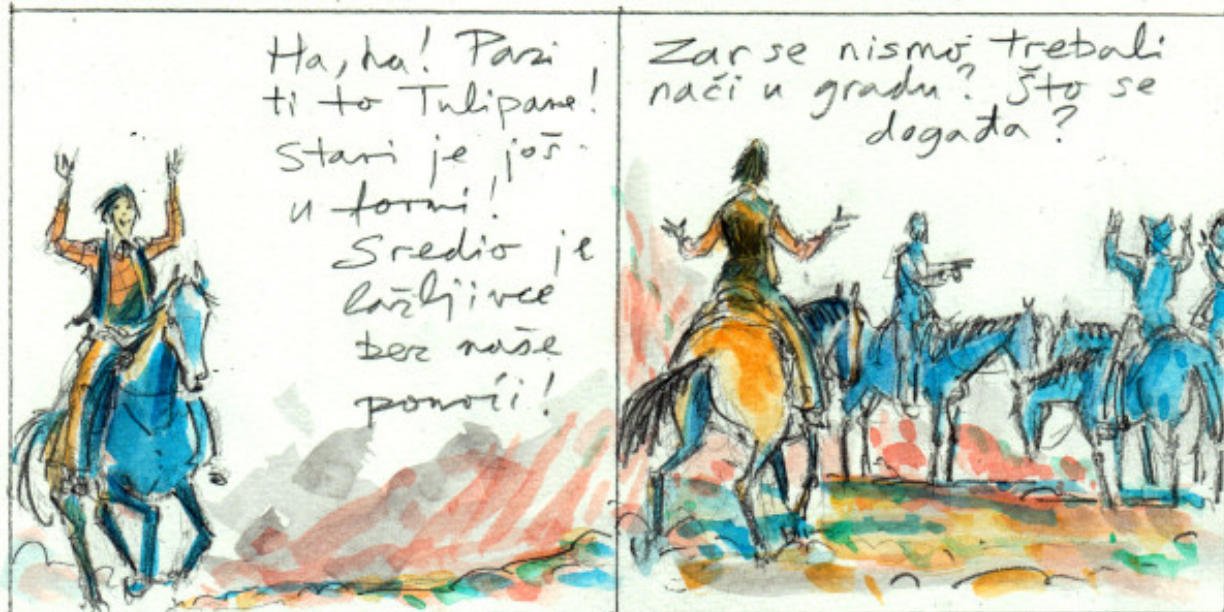 Ha, ha! Pazi
ti to Tulipane!
Stari je još
u formi!
Sredio je
lažljivce
bez naše
pomoći!
Zar se nismo trebali
naći u gradu? Što se
događa?